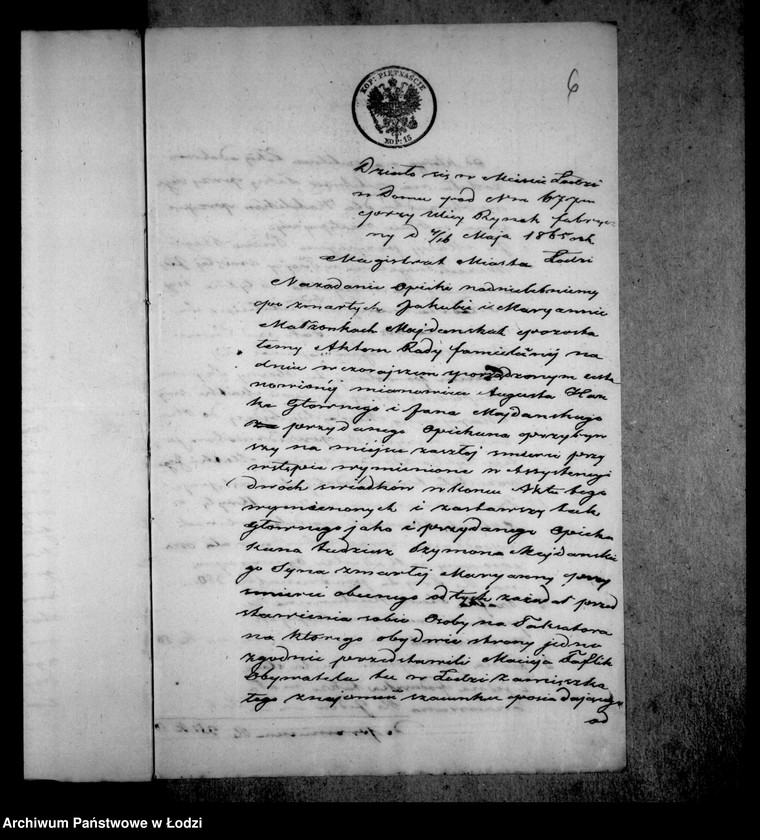 6
KOP: PIĘTNAŚCIE
KOP: 15
Działo się w Mieście Łodzi
w Domu pod Nrm 677m
przy Ulicy Rynek fabrycz
ny d 4/16 Maja 1865 rk
Magistrat Miasta Łodzi
Na żądanie Opieki nad nieletniemi
po zmarłych Jakubie i Maryannie
Małżonkach Majdańskich pozosta
łemi Aktem Rady familijnej na
dniu wczorajszem usta
nowionej mianowicie Augusta
Głownego i Jana Majdańskiego
przydanego Opiekuna przybyw
szy na miejsce zaszłej śmierci przy
wstępie wymienione w Assystencyi
dwóch świadków w końcu Aktu tego
wymienionych i zastawszy tak
Głownego jako i przydanego Opie
kuna tudzież Szymona Majdańskie
go Syna zmarłej Maryanny przy
śmierci obecnego od tych zażądał przed
stawienia sobie Osoby na Taksatora
na którego obydwie strony jedno
zgodnie przedstawili Macieja
Obywatela tu w Łodzi zamieszka
łego znajomość szacunku posiadającego
od
Archiwum Państwowe w Łodzi